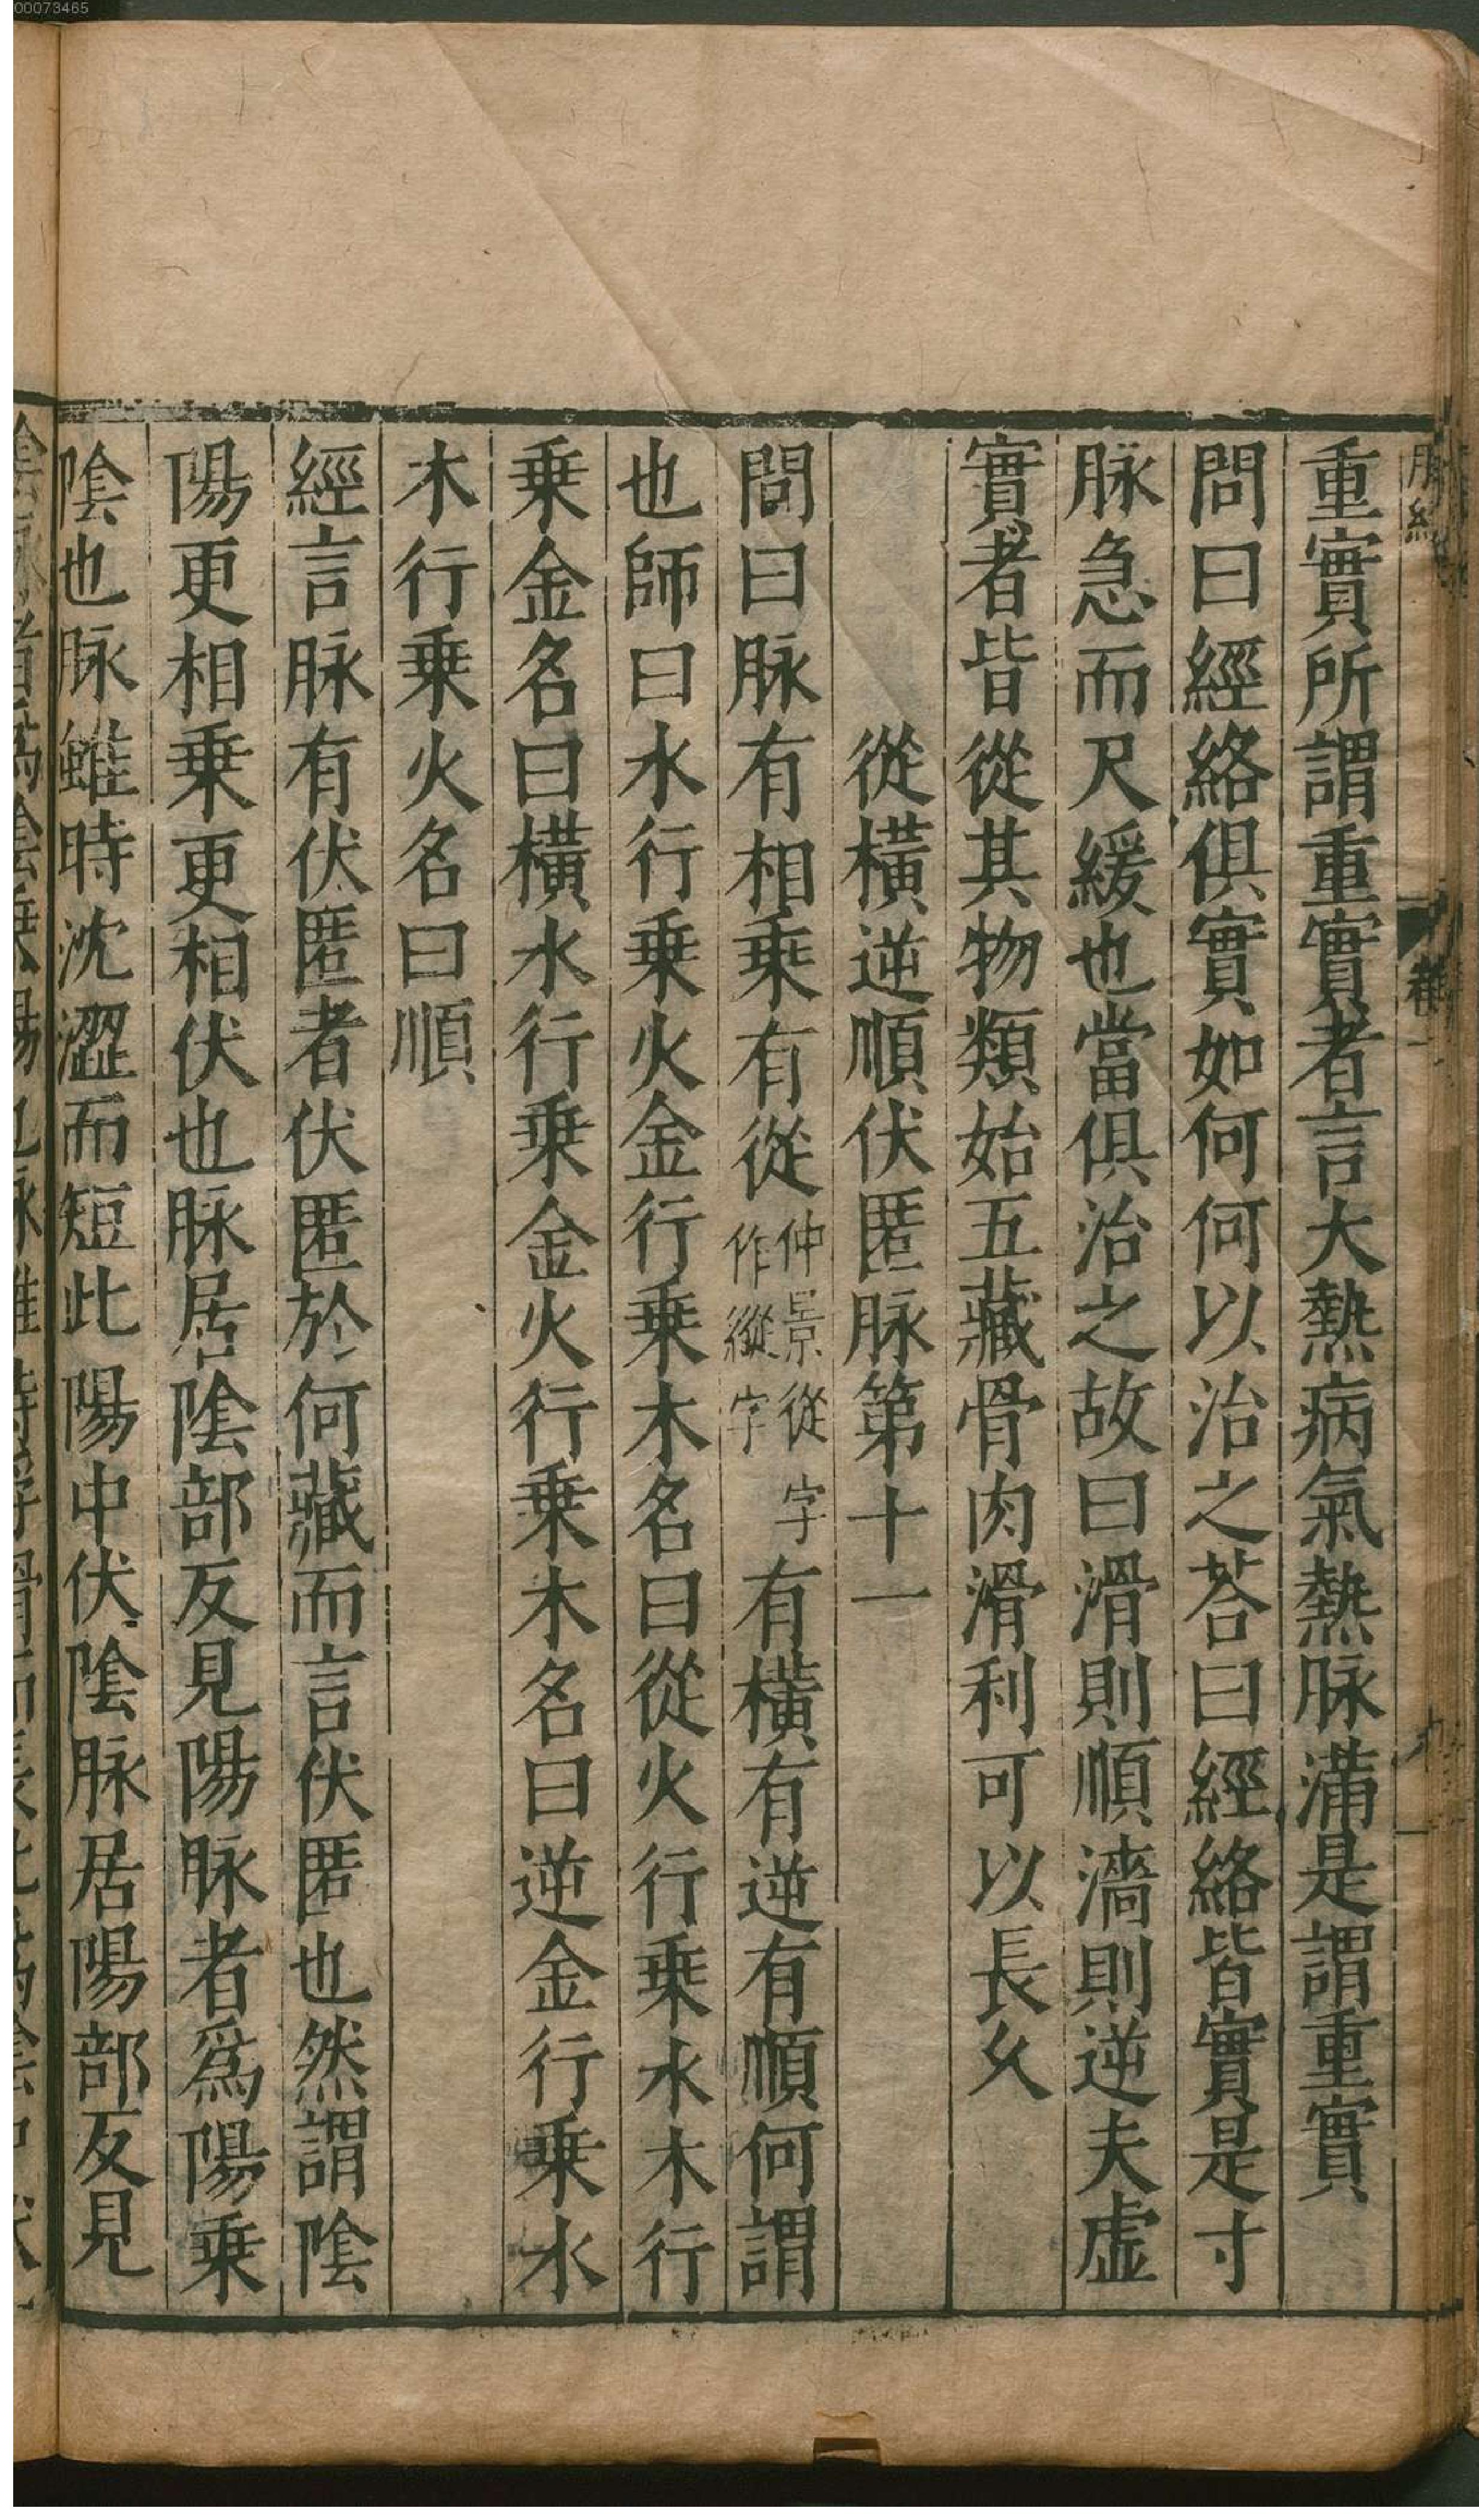 00073465
重實所謂重實者言大熱病氣熱脉滿是謂重實
問曰經絡俱實如何何以治之荅曰經絡皆實是寸
脉急而尺緩也當俱治之故曰滑則順濇則逆夫虛
實者皆從其物類始五藏骨肉滑利可以長久
從橫逆順伏匿脉第十一
問曰脉有相乗有從仲景從字作縱字有橫有逆有順何謂
也師曰水行乗火金行乗木名曰從火行乗水木行
乗金名曰橫水行乗金火行乗木名曰逆金行乗水
木行乗火名曰順
經言脉有伏匿者伏匿於何藏而言伏匿也然謂隂
陽更相乗更相伏也脉居隂部反見陽脉者爲陽乗
隂也脉雖時沈澀而短此陽中伏隂脉居陽部反見